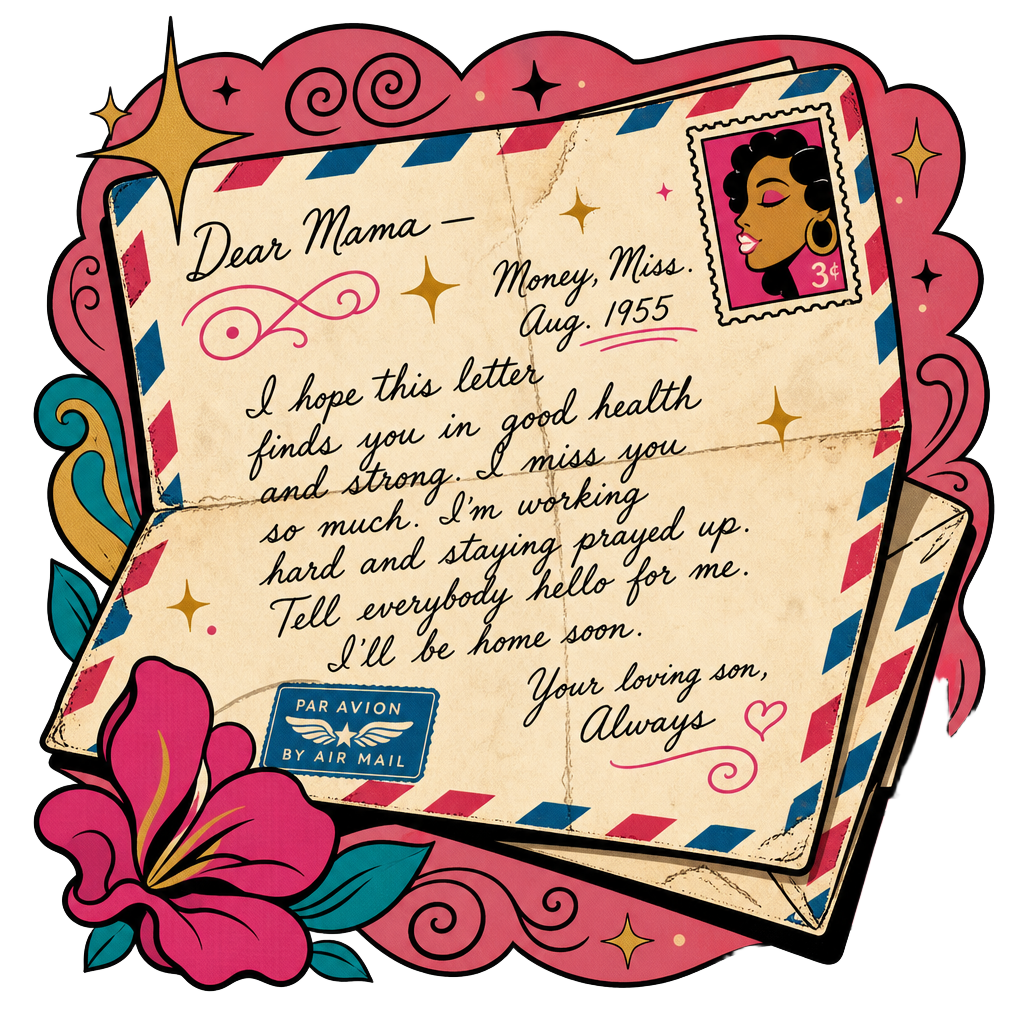 Dear Mama —
3¢
Money, Miss.
Aug. 1955
I hope this letter
finds you in good health
and strong. I miss you
so much. I'm working
hard and staying prayed up.
Tell everybody hello for me.
I'll be home soon.
Your loving son,
Always
PAR AVION
BY AIR MAIL